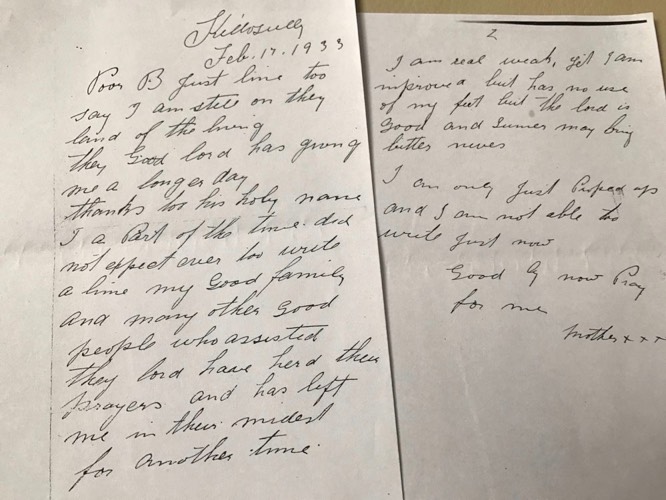 Killoscully
Feb. 17. 1933
Poor B Just line too
say I am still on they
land of the living
they Good lord has giving
me a longer day
thanks too his holy name
I a Part of the time did
not expect ever too write
a line my Good family
and many other Good
people who assisted
they lord have herd their
prayers and has left
me in their midest
for another time.
2
I am real weak, yet I am
improved but has no use
of my feet but the lord is
Good and may bring
better news
I am only Just Proped up
and I am not able to
write Just now
Good by now Pray
for me
Mother x x x